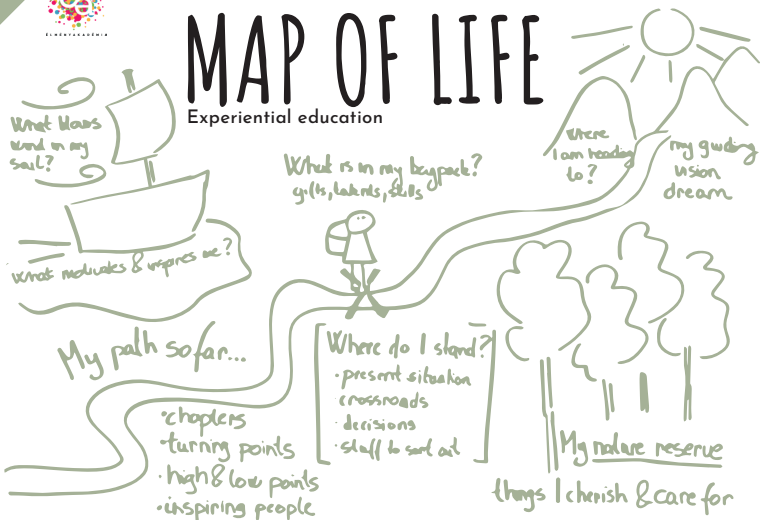 ÉLMÉNYAKADÉMIA
MAP OF LIFE
Experiential education
What blows
wind in my
sail?
What motivates & inspires me?
What is in my baypack?
gifts, talents, skills
Where
I am heading
to?
my guiding
vision
dream
My path so far...
• chapters
• turning points
• high & low points
• inspiring people
Where do I stand?
• present situation
• crossroads
• decisions
• stuff to sort out
My nature reserve
things I cherish & care for